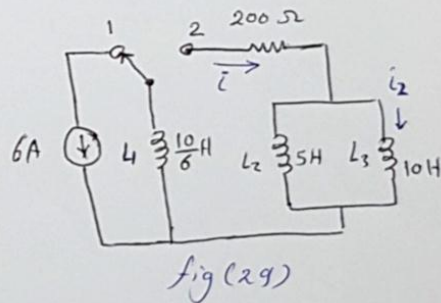 200 Ω
1
2
i
i₂
6A
L1
10/6 H
L₂
5H
L₃
10H
fig(29)